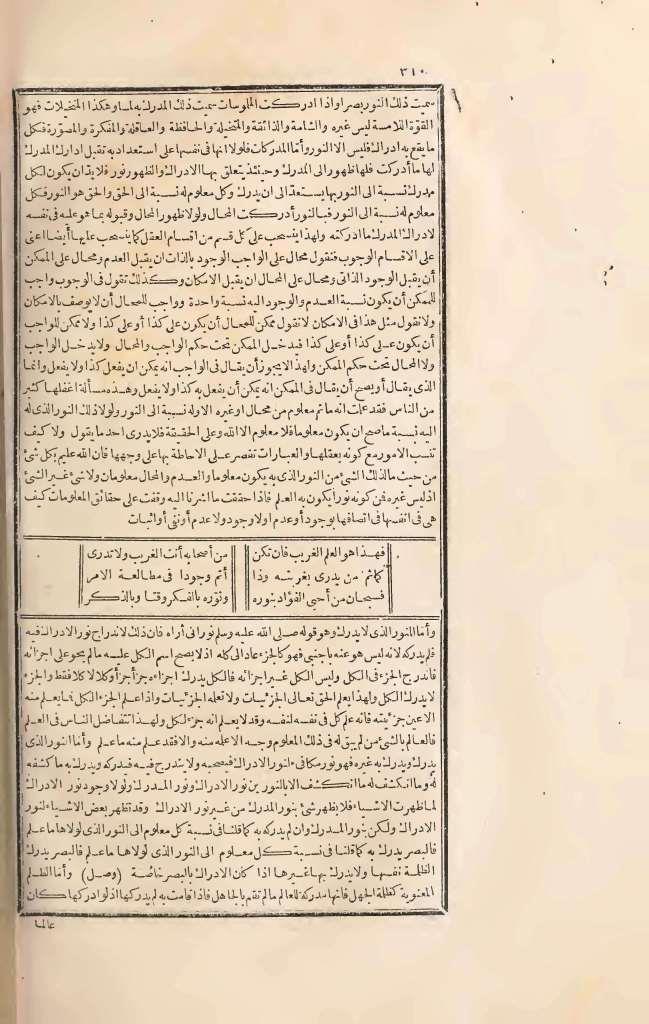 ٣١٠
سميت ذلك النور بصرا واذا ادركت الملموسات سميت ذلك المدرك به لمسا وهكذا المتخيلات فهو
القوّة اللامسة ليس غيره والشامة والذائقة والمتخيلة والحافظة والعاقلة والمفكرة والمصوّرة فكل
ما يقع به ادراك فليس الا النور وأما المدركات فلولا انها في نفسها على استعداد به تقبل ادراك المدرك
لها ما أدركت فلها ظهور الى المدرك وحينئذ يتعلق بها الادراك والظهور نور فلا بد ان يكون لكل
مدرك نسبة الى النور بها يستعد الى ان يدرك وكل معلوم له نسبة الى الحق والحق هو النور فكل
معلوم له نسبة الى النور فبالنور أدركت المحال ولولا ظهور المحال وقبوله بما هو عليه في نفسه
لادراك المدرك ما ادركته ولهذا ينسحب على كل قسم من اقسام العقل كما ينسحب عليها أيضا اعنى
على الاقسام الوجوب فنقول محال على الواجب الوجود بالذات ان يقبل العدم ومحال على الممكن
أن يقبل الوجود الذاتى ومحال على المحال ان يقبل الامكان وكذلك تقول فى الوجوب واجب
للممكن أن يكون نسبة العدم والوجود اليه نسبة واحدة وواجب للمحال أن لا يوصف بالامكان
ولا تقول مثل هذا فى الامكان لا تقول ممكن للمحال أن يكون على كذا أو على كذا ولا ممكن للواجب
أن يكون على كذا أو على كذا فيدخل الممكن تحت حكم الواجب والمحال ولا يدخل الواجب
ولا المحال تحت حكم الممكن ولهذا لا يجوز أن يقال فى الواجب انه يمكن ان يفعل كذا ولا يفعل وانما
الذى يقال أو يصح أن يقال فى الممكن انه يمكن أن يفعل به كذا ولا يفعل وهذه مسألة اغفلها كثير
من الناس فقد علمت انه ما ثم معلوم من محال أو غيره الا وله نسبة الى النور ولولا ذلك النور الذى له
اليه نسبة ما صح ان يكون معلوما فلا معلوم الا الله وعلى الحقيقة فلا يدرى احد ما يقول ولا كيف
تنسب الامور مع كونه يعقلها والعبارات تقصر على الاحاطة بها على وجهها فان الله عليم بكل شئ
من حيث ما لذلك الشئ من النور الذى به يكون معلوما والعدم والمحال معلومان ولا شئ غير الشئ
اذ ليس غيره فمن كونه نورا يكون به العلم فاذا حققت ما اشرنا اليه وقفت على حقائق المعلومات كيف
هى فى انفسها فى اتصافها بوجود أو عدم او لا وجود ولا عدم أو نفى أو اثبات
فهذا هو العلم الغريب فان تكن من أصحابه أنت الغريب ولا تدرى
كما تم من يدرى بغربته وذا أتم وجودا فى مطالعة الامر
فسبحان من أحيى الفؤاد بنوره ونوّره بالفكر وقتا وبالذكر
وأما النور الذى لا يدرك وهو قوله صلى الله عليه وسلم نور انى أراه فان ذلك لاندراج نور الادراك فيه
فلم يدركه لانه ليس هو عنه باجنبى فهو كالجزء عاد الى كله اذ لا يصح اسم الكل عليه ما لم يحو على اجزائه
فاندرج الجزء فى الكل وليس الكل غير اجزائه فالكل يدرك اجزاءه جزأ جزأ وكلا كلا فقط والجزء
لا يدرك الكل ولهذا يعلم الحق تعالى الجزئيات ولا تعلمه الجزئيات واذا علم الجزء الكل فما يعلم منه
الا عين جزئيته فانه علم كل فى نفسه لنفسه وقد لا يعلم انه جزء لكل ولهذا تتفاضل الناس فى العلم
فالعالم بالشئ من لم يبق له فى ذلك المعلوم وجه الا علمه منه والا فقد علم منه ما علم وأما النور الذى
يدرك ويدرك به غيره فهو نور مكافىء لنور الادراك فيصحبه ولا يندرج فيه فيدركه ويدرك به ما كشفه
له وما انكشف له ما انكشف الا بالنورين نور الادراك ونور المدرك ولولا وجود نور الادراك
لما ظهرت الاشياء فلا يظهر شئ بنور المدرك من غير نور الادراك وقد تظهر بعض الاشياء لنور
الادراك ولكن بنور المدرك وان لم يدركه به كما قلنا فى نسبة كل معلوم الى النور الذى لولا ها ما علم
فالبصر يدرك به كما قلنا فى نسبة كل معلوم الى النور الذى لولاها ما علم فالبصر يدرك
الظلمة نفسها ولا يدرك بها غيرها اذا كان الادراك بالبصر خاصة (وصل) وأما الظلم
المعنوية كظلمة الجهل فانها مدركة للعالم ما لم تقم بالجاهل فاذا قامت به لم يدركها اذ لو ادركها كان
عالما